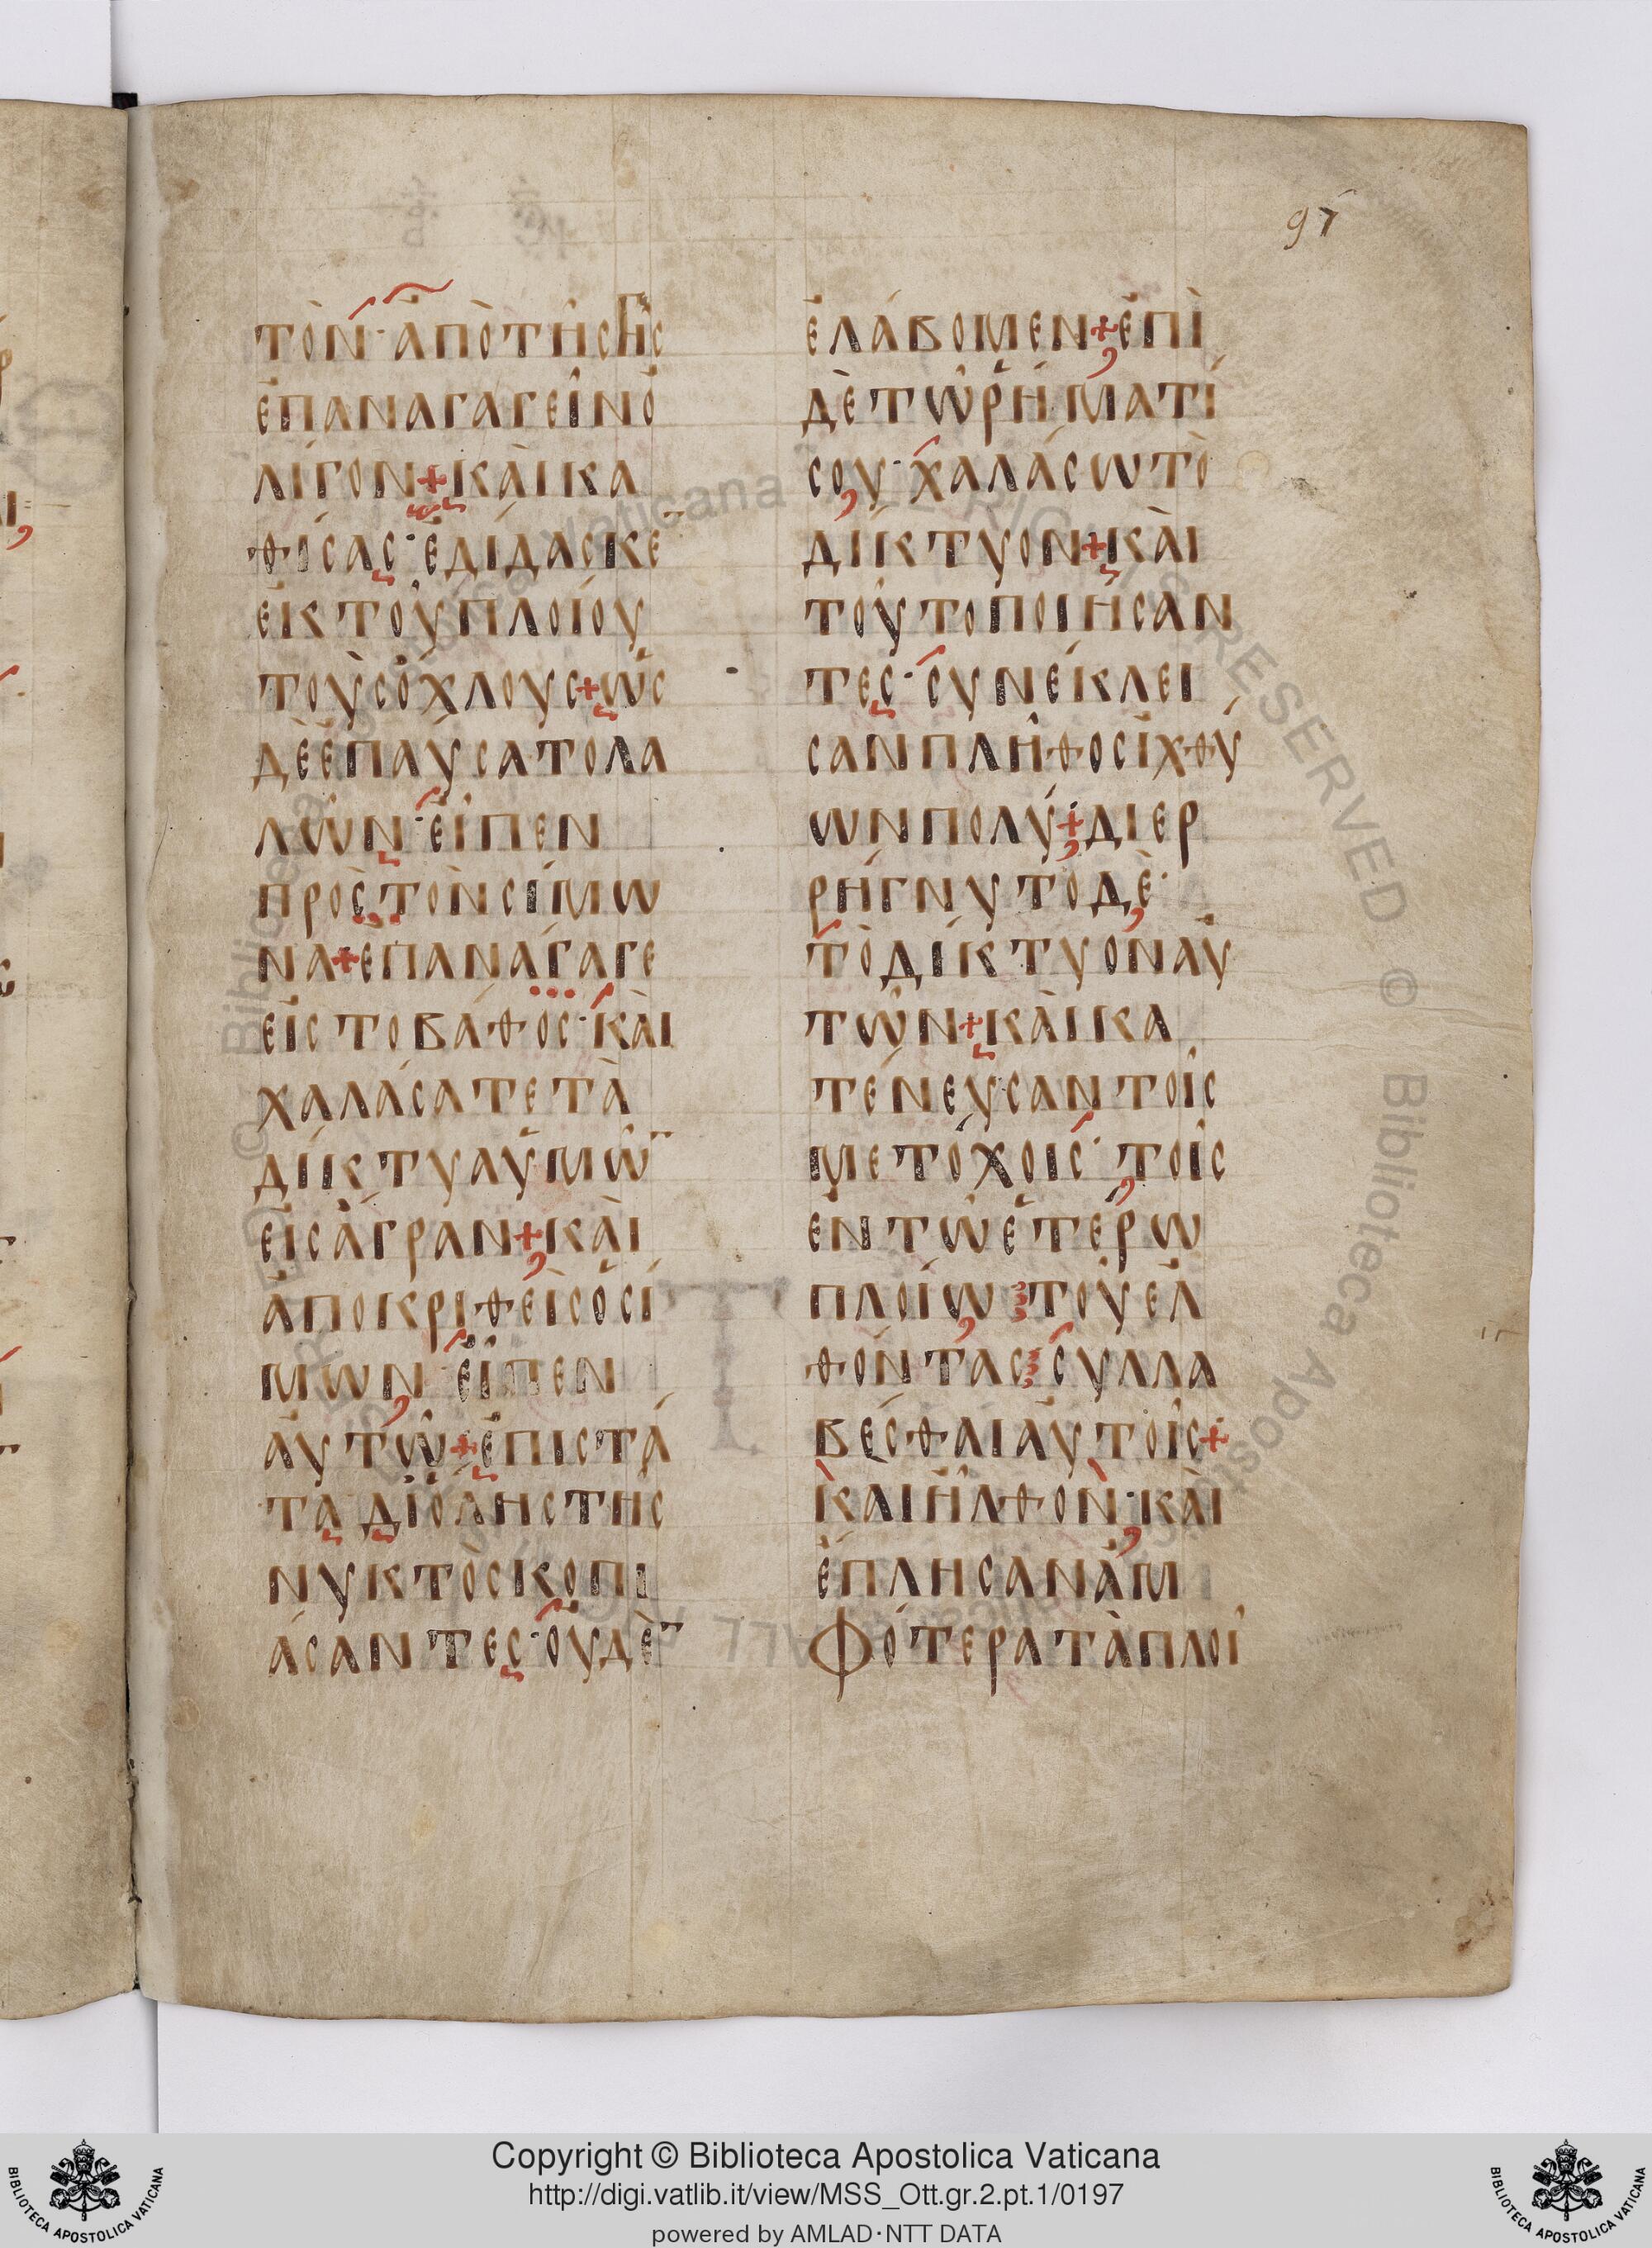 97
ΤῸΝ· ἈΠῸΤΗ͂ϹΓΗ͂Ϲ
ἘΠΑΝΑΓΑΓΕΙ͂ΝὈ
ΛΊΓΟΝ+ΚΑῚΚΑ
ΘΊϹΑϹ·ἘΔΊΔΑϹΚΕ¯
ἘΚΤΟΥ͂ΠΛΟΊΟΥ
ΤΟῪϹὌΧΛΟΥϹ+ὩϹ
ΔῈἘΠΑΎϹΑΤΟΛΑ
ΛΩ͂Ν·ΕἾΠΕΝ
ΠΡῸϹΤῸΝϹΊΜΩ
ΝΑ+ἘΠΑΝΆΓΑΓΕ
ΕἸϹΤΟΒΆΘΟϹ·ΚΑῚ
ΧΑΛΆϹΑΤΕΤᾺ
ΔΊΚΤΥΑὙΜΩ͂¯
ΕἸϹἌΓΡΑΝ+ΚΑῚ
ἈΠΟΚΡΙΘΕῚϹὉϹΊ
ΜΩΝ·ΕἾΠΕΝ
ΑΥ̓ΤΩ͂+ἘΠΙϹΤΆ
ΤΑ ΔΙὍΛΗϹΤΗ͂Ϲ
ΝΥΚΤῸϹΚΟΠΙ
ΆϹΑΝΤΕϹ·ΟΥ̓ΔῈ¯
ἘΛΆΒΟΜΕΝ+ἘΠῚ
ΔῈΤΩ͂ΡΉΜΑΤΊ
ϹΟΥ·ΧΑΛΆϹΩΤῸ
ΔΊΚΤΥΟΝ+ΚΑῚ
ΤΟΥ͂ΤΟΠΟΙΉϹΑΝ
ΤΕϹ·ϹΥΝΈΚΛΕΙ
ϹΑΝΠΛΗ͂ΘΟϹἸΧΘΎ
ΩΝΠΟΛΎ+ΔΙΕΡ
ΡΉΓΝΥΤΟΔῈ·
ΤῸΔΊΚΤΥΟΝΑΥ̓
ΤΩ͂Ν+ΚΑῚΚΑ
ΤΈΝΕΥϹΑΝΤΟΙ͂Ϲ
ΜΕΤΌΧΟΙϹ·ΤΟΙ͂Ϲ
ἘΝΤΩ͂ἙΤΈΡΩ
ΠΛΟΊΩ ΤΟΥ͂ΕΛ
ΘΌΝΤΑϹ ϹΥΛΛΑ
ΒΈϹΘΑΙΑΥ̓ΤΟΙ͂Ϲ+
ΚΑΙἮΛΘΟΝ·ΚΑῚ
ἜΠΛΗϹΑΝἈΜ
ΦΌΤΕΡΑΤᾺΠΛΟΙ͂
Copyright © Biblioteca Apostolica Vaticana
http://digi.vatlib.it/view/MSS_Ott.gr.2.pt.1/0197
powered by AMLAD·NTT DATA
BIBLIOTECA APOSTOLICA VATICANA
BIBLIOTECA APOSTOLICA VATICANA